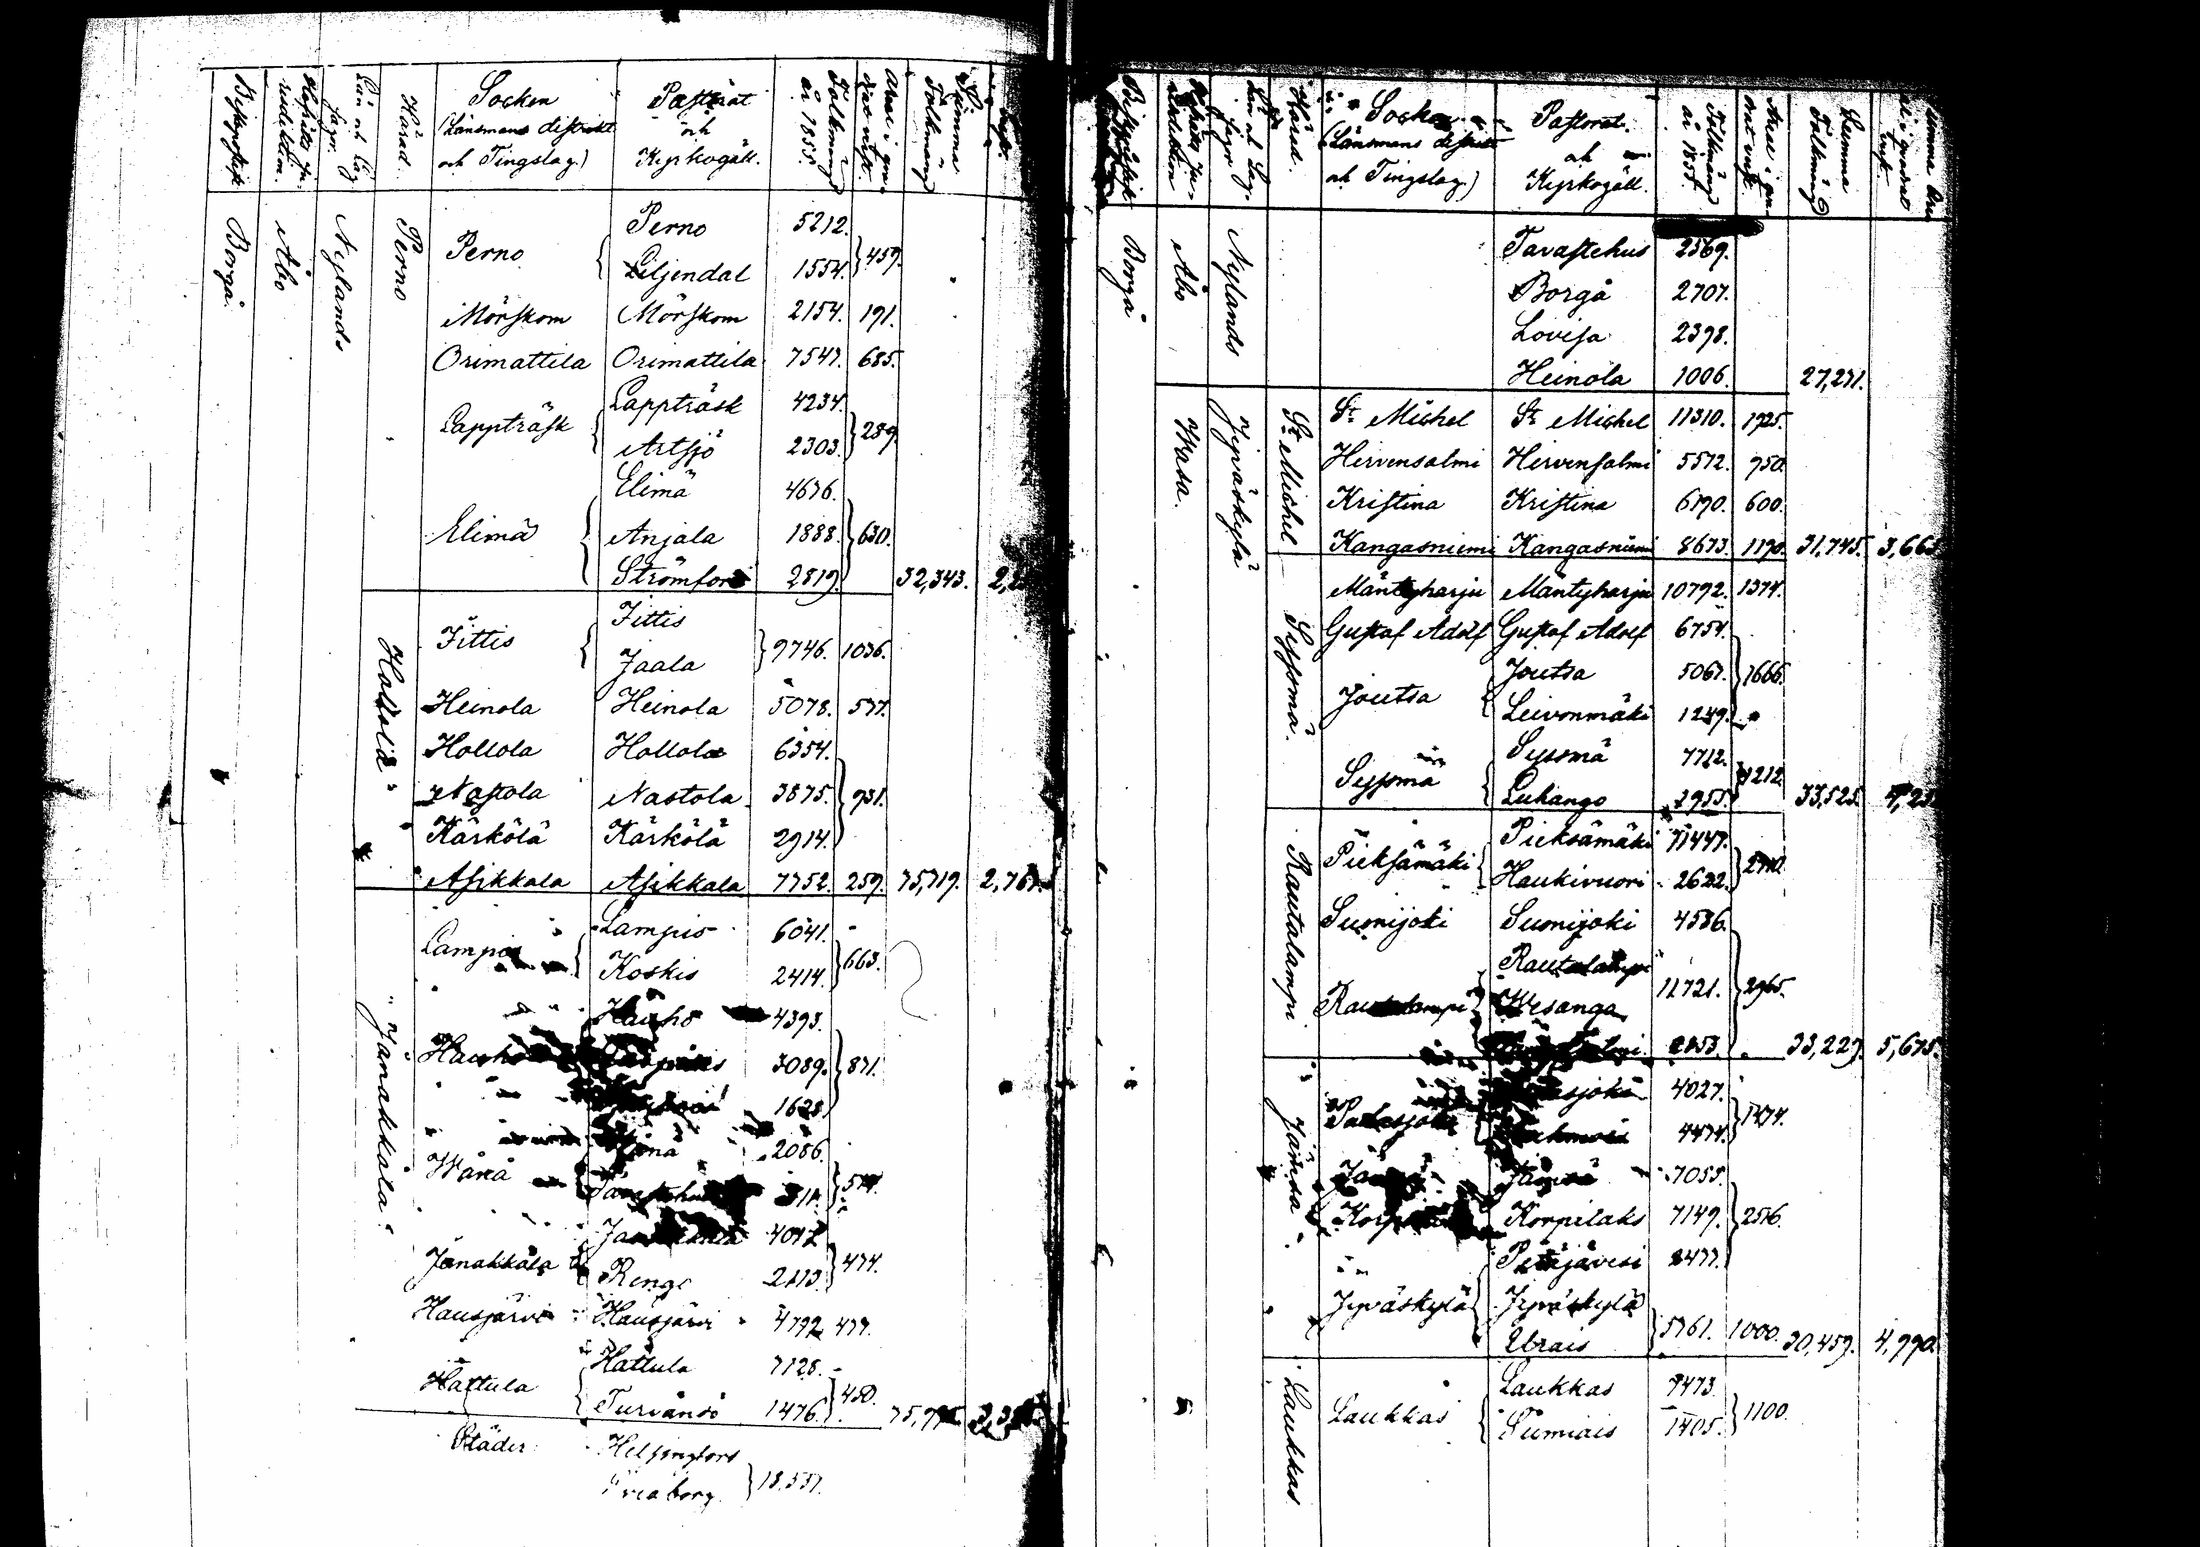 Biskopsstift.
Län och Lagsagor.
Härad.
Socken (Länsmans distrikt och Tingslag)
Pastorat och Kyrkogäll.
Folkmängd år 1855.
Summa Folkmängd
Borgå.
Åbo
Nylands
Perno
Perno { Perno 5212. } 459.
Liljendal 1554.
Mörskom Mörskom 2154. 191.
Orimattila Orimattila 7547. 685.
Lappträsk { Lappträsk 4234. } 289
Artsjö 2303.
Elimä { Elimä 4636. } 630.
Anjala 1888.
Strömfors 2819. 32,343.
Hollola
Jittis { Jittis } 9746. 1036.
Jaala
Heinola Heinola 5078. 537.
Hollola Hollola 6354. } 931.
Nastola Nastola 3875.
Kärkölä Kärkölä 2914.
Asikkala Asikkala 7752. 259. 35,719.
Janakkala.
Lampis { Lampis 6041. } 663.
Koskis 2414.
Hauho Hauho 4393. } 871.
3089.
1628.
Wånå 2086.
Janakkala
Renge 474.
Hausjärvi Hausjärvi 4792 477.
Hattula { Hattula 7128. } 450.
Turänsö 1476.
Städer Helsingfors } 18.537.
Sveaborg.
Härad.
Socken (Länsmans distrikt och Tingslag.)
Pastorat. och Kyrkogäll.
Folkmängd år 1855.
Summa Folkmängd
Borgå
Åbo
Nylands
Tavastehus 2569.
Borgå 2707.
Lovisa 2398.
Heinola 1006. 27,271.
Wasa.
Jyväskylä
St Michel
St Michel St Michel 11310. 1925.
Hirvensalmi Hirvensalmi 5572. 950.
Kristina Kristina 6190. 600.
Kangasniemi Kangasniemi 8673. 1190. 31,745.
Syssmä.
Mäntyharju Mäntyharju 10792. 1374.
Gustaf Adolf Gustaf Adolf 6754. } 1666.
Joutsa { Joutsa 5067.
Leivonmäki 1249.
Syssmä { Syssmä 7712. } 1212
Luhango 1955. 33,525.
Rautalampi
Pieksämäki { Pieksämäki 11447.
Haukivuori 2622.
Sumijoki Sumijoki 4536. } 2965.
Rautalampi { Rautalampi 11721.
Wesanga
2853. 33,229. 5,675.
Jämsä.
Padasjoki 4027. } 1474.
4474.
Jämsä 7055.
Korpilaks 7149. } 2516.
Jyväskylä { Petäjävesi 2477.
Jyväskylä } 5761. 1000. 30,459. 4,990.
Urais
Laukkas
Laukkas { Laukkas 9473. } 1100.
Sumiais 1405.